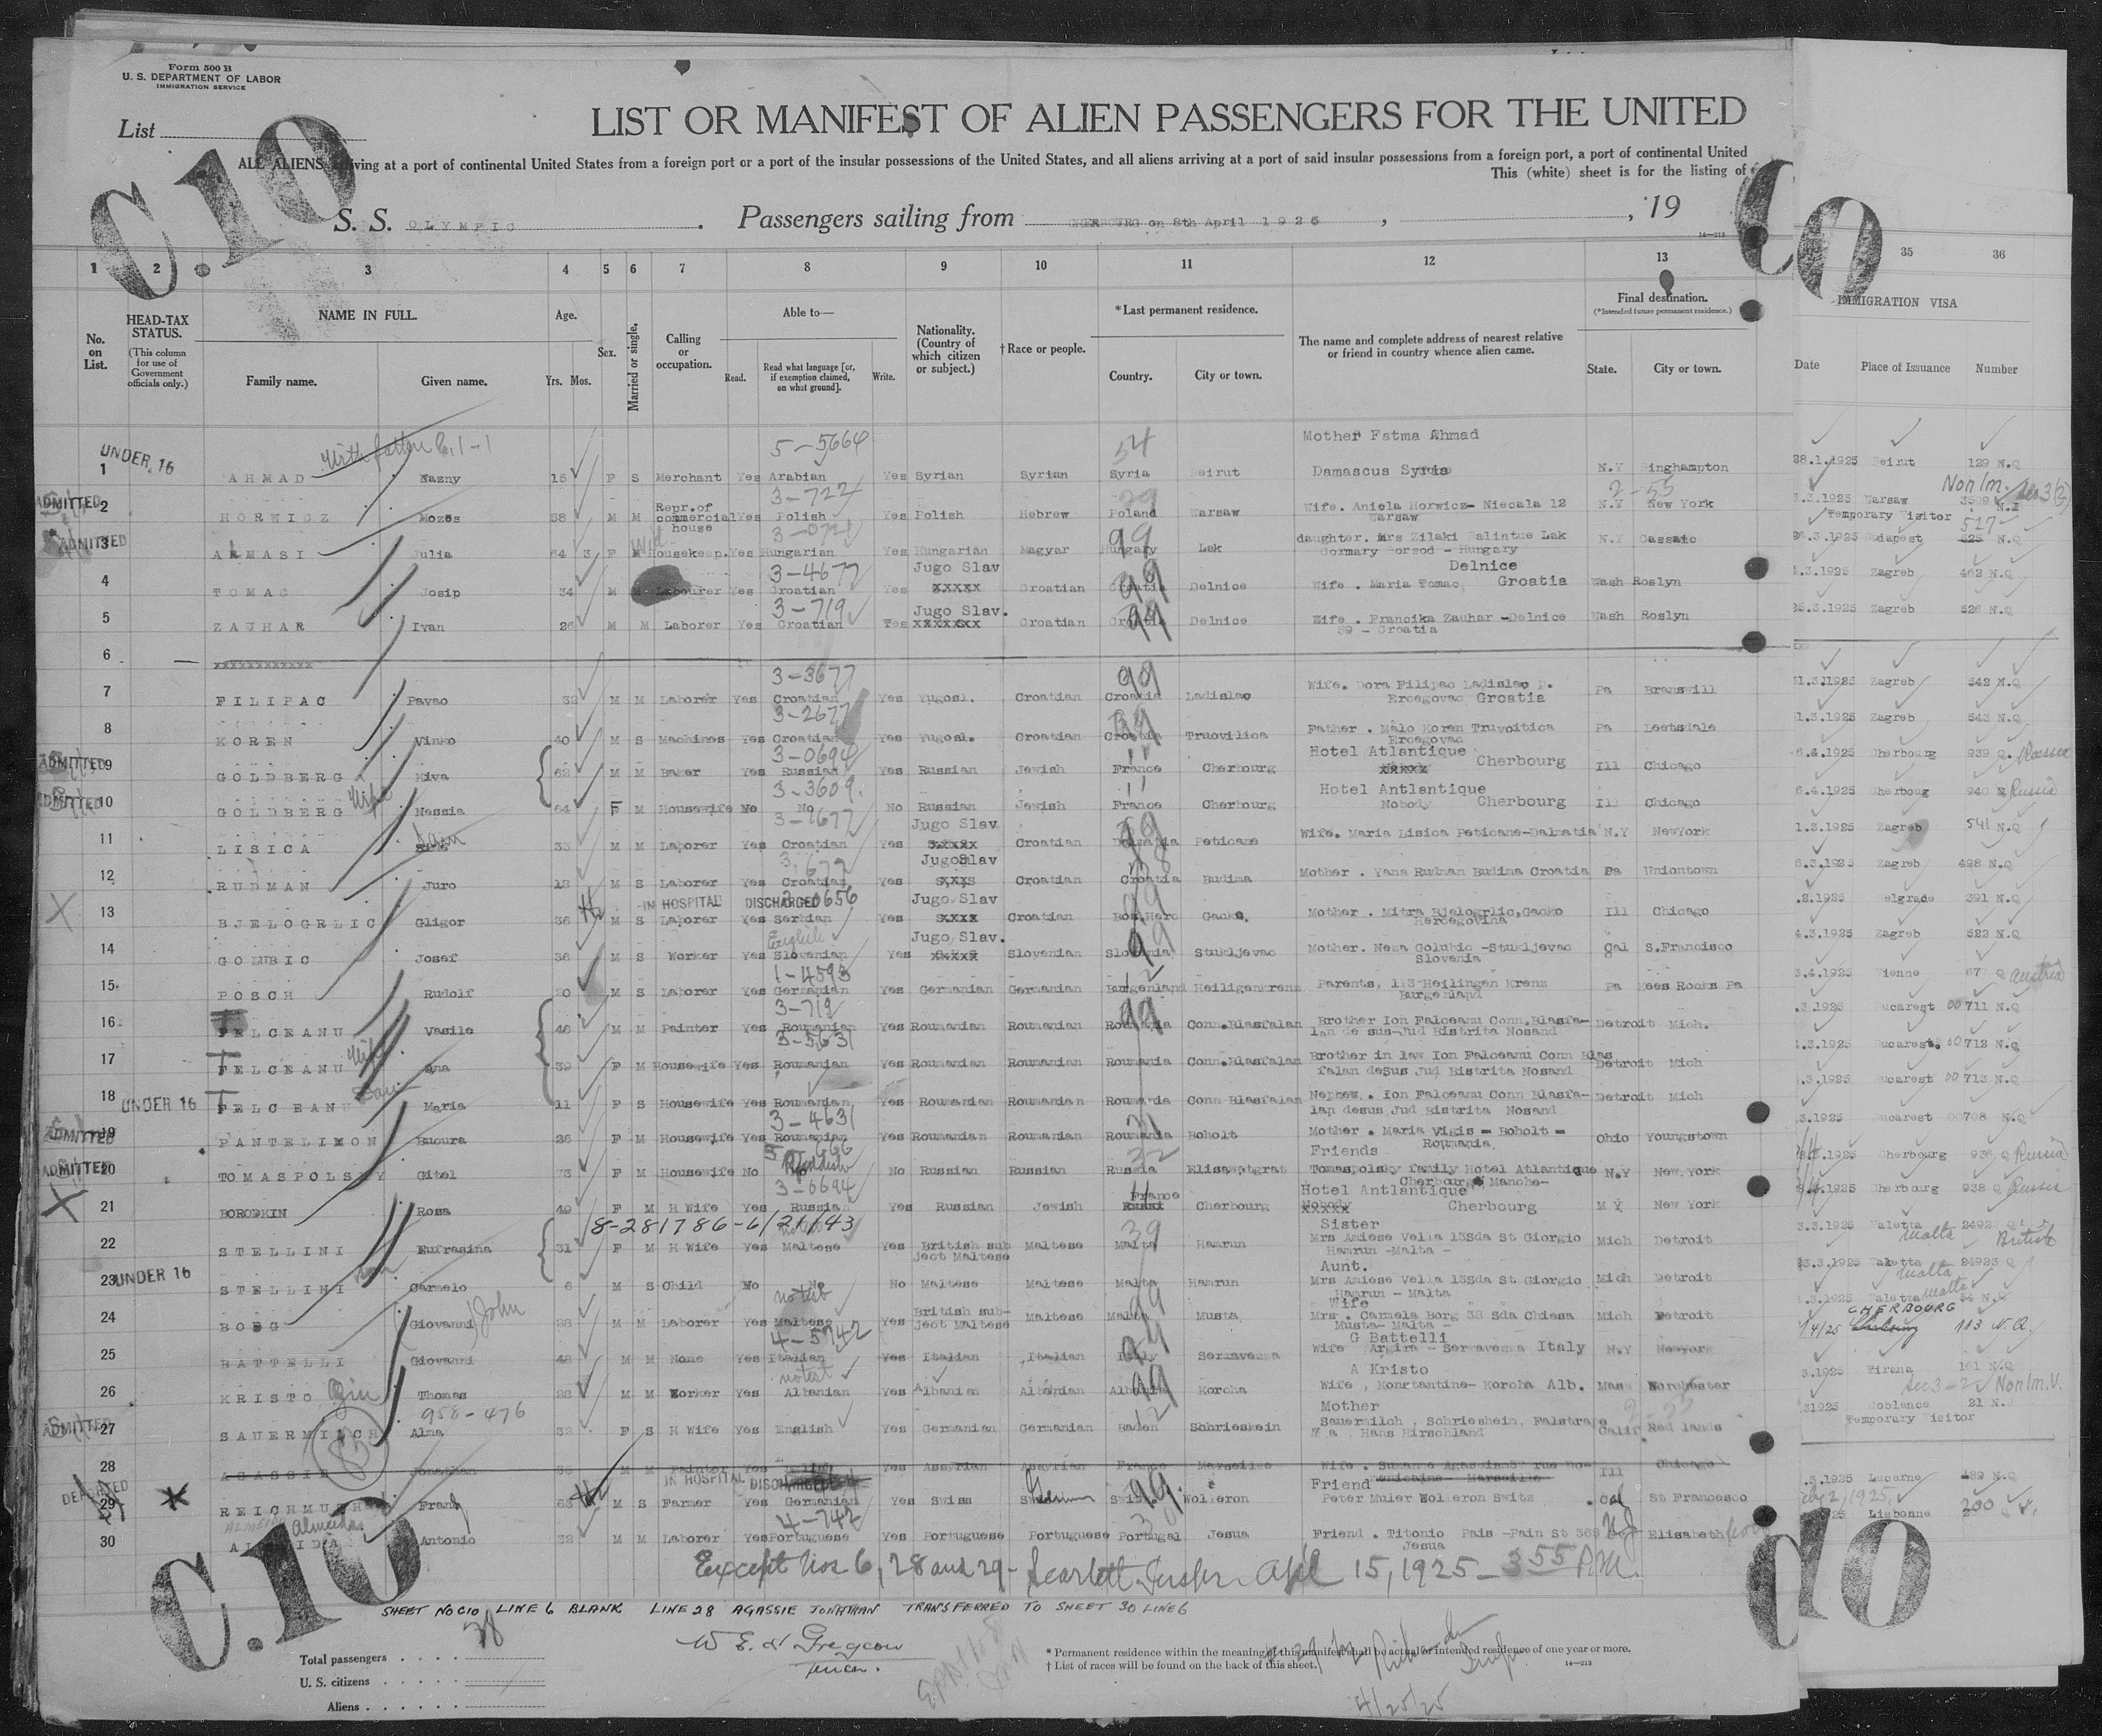 Form 500 B
U. S. DEPARTMENT OF LABOR
IMMIGRATION SERVICE
List
C.10
LIST OR MANIFEST OF ALIEN PASSENGERS FOR THE UNITED
ALL ALIENS arriving at a port of continental United States from a foreign port or a port of the insular possessions of the United States, and all aliens arriving at a port of said insular possessions from a foreign port, a port of continental United
This (white) sheet is for the listing of
S. S. OLYMPIC . Passengers sailing from CHERBOURG on 8th April 1925 , , 19
14—213
1 2 3 4 5 6 7 8 9 10 11 12 13 35 36
No. on List.
HEAD-TAX STATUS.
(This column for use of Government officials only.)
NAME IN FULL.
Family name. Given name.
Age.
Yrs. Mos.
Sex.
Married or single.
Calling or occupation.
Able to—
Read. Read what language [or, if exemption claimed, on what ground]. Write.
Nationality. (Country of which citizen or subject.)
†Race or people.
*Last permanent residence.
Country. City or town.
The name and complete address of nearest relative or friend in country whence alien came.
Final destination.
(*Intended future permanent residence.)
State. City or town.
IMMIGRATION VISA
Date Place of Issuance Number
With father C.1-1 5-5664 54 Mother Fatma Ahmad
UNDER 16
1 AHMAD Nazny 15 F S Merchant Yes Arabian Yes Syrian Syrian Syria Beirut Damascus Syria N.Y Binghampton 28.1.1925 Beirut 129 N.Q
3-722 2-55 Non Im. Sec 3(2)
ADMITTED 2 HORWICZ Mozes 58 M M Repr.of commercial house Yes Polish Yes Polish Hebrew Poland Warsaw Wife. Aniela Horwicz- Niecala 12 Warsaw N.Y New York 3.1925 Warsaw 3509
Temporary Visitor
527
ADMITTED 3 ARMASI Julia 64 3 F Wid Housekeep. Yes Hungarian Yes Hungarian Magyar Hungary Lak daughter. Mrs Zilaki Balintue Lak Gormary Borsod - Hungary N.Y Cassaic 3.1925 Budapest 525 N.Q
3-4677 Jugo Slav 99 Delnice
4 TOMAC Josip 34 M Labourer Yes Croatian Yes xxxxx Croatian Croatia Delnice Wife . Maria Tomac Croatia Wash Roslyn 3.1925 Zagreb 462 N.Q
3-719 Jugo Slav. 99
5 ZAUHAR Ivan 26 M M Laborer Yes Croatian Yes xxxxxxx Croatian Croatia Delnice Wife . Francika Zauhar -Delnice 59 - Croatia Wash Roslyn 25.3.1925 Zagreb 526 N.Q
6 xxxxxxxxxxxx
3-3677 99
7 FILIPAC Pavao 32 M M Laborer Yes Croatian Yes Yugosl. Croatian Croatia Ladislac Wife. Dora Filipac Ladislac p. Ercegovac Croatia Pa Branswill 3.1925 Zagreb 542 N.Q
3-2677 99
8 KOREN Vinko 40 M S Machines Yes Croatian Yes Yugosl. Croatian Croatia Truovilica Father . Malo Koren Truvoitica Ercegovac Pa Leetsdale 3.1925 Zagreb 543 N.Q
3-0694 Hotel Atlantique
ADMITTED 9 GOLDBERG Kiva 62 M M Baker Yes Russian Yes Russian Jewish France Cherbourg xxxxx Cherbourg Ill Chicago 6.4.1925 Cherbourg 939 Q. Russia
Wife 3-3609. Hotel Antlantique
ADMITTED 10 GOLDBERG Nessia 64 F M Housewife No No No Russian Jewish France Cherbourg Nobody Cherbourg Ill Chicago 6.4.1925 Cherboug 940 Russia
3-1677 Jugo Slav
11 LISICA 35 M M Laborer Yes Croatian Yes xxxxx Croatian Dalmatia Peticane Wife. Maria Lisica Peticane-Dalmatia N.Y NewYork 1.3.1925 Zagreb 541 N.Q
JugoSlav
12 RUDMAN Juro 18 M S Laborer Yes Croatian Yes Croatian Croatia Budima Mother . Yana Rudman Budima Croatia Pa Uniontown 3.1925 Zagreb 498 N.Q
IN HOSPITAL DISCHARGED 0656 Jugo Slav 99
13 BJELOGRLIC Gligor 36 M S Laborer Yes Serbian Yes xxxx Croatian Bos.Herc Gacko, Mother . Mitra Bjelogrlic,Gacko Hercegovina Ill Chicago .2.1925 Belgrade 391 N.Q
English Jugo Slav. 99
14 GOLUBIC Josef 36 M S Worker Yes Slovenian Yes xxxxx Slovenian Slovenia Stukljevac Mother. Neza Golubic -Stukljevac Slovenia Cal S.Francisco 4.3.1925 Zagreb 522 N.Q
1-4593 12
15 POSCH Rudolf 20 M S Laborer Yes Germanian Yes Germanian Germanian Burgenland Heiligenkrenz Parents, 113-Heilingen Krenz Burgenland Pa Kees Rocks Pa 3.4.1925 Vienne 67 Q Austria
3-719 99
16 FELCEANU Vasile 48 M M Painter Yes Roumanian Yes Roumanian Roumanian Roumania Conn.Blasfalan Brother Ion Falceanu Conn.Blasfa- lan de sus-Jud Bistrita Nosand Detroit Mich. .3.1925 Bucarest 00 711 N.Q
Wife 3-5631
17 FELCEANU Ana 39 F M Housewife Yes Roumanian Yes Roumanian Roumanian Roumania Conn.Blasfalan Brother in law Ion Falceanu Conn Blas falan deSus Jud Bistrita Nosand Detroit Mich .3.1925 Bucarest 712 N.Q
18 UNDER 16 FELCEANU Maria 11 F S Housewife Yes Roumanian Yes Roumanian Roumanian Roumania Conn Blasfalan Nephew. Ion Falceanu Conn Blasfa- lan desus Jud Bistrita Nosand Detroit Mich .3.1925 Bucarest 00 713 N.Q
3-4631
ADMITTED 19 PANTELIMON Bucura 26 F M Housewife Yes Roumanian Yes Roumanian Roumanian Roumania Boholt Mother . Maria Vigis - Boholt - Roumania Ohio Youngstown .3.1925 Bucarest 00708 N.Q
Yiddish 32 Friends
ADMITTED 20 TOMASPOLSKY Gitel 73 F M Housewife No No No Russian Russian Russia Elisawetgrat Tomaspolsky family Hotel Atlantique Cherbourg Manche- N.Y New.York 1925 Cherbourg 936 Q Russia
3-0694 France Hotel Antlantique
21 BORODKIN Rosa 49 F M H Wife Yes Russian Yes Russian Jewish Cherbourg Nobody xxxxx Cherbourg New York 1925 Cherbourg 938 Q Russia
8-281786-6/21/43 39 Sister
22 STELLINI Eufrasina 31 F M H Wife Yes Maltese Yes British sub ject Maltese Maltese Malta Hamrun Mrs Amiese Vella 13Sda St Giorgio Hamrun -Malta - Mich Detroit 3.3.1925 Valetta Malta 24922 Q British
Aunt.
23 UNDER 16 STELLINI Carmelo 6 M S Child No No No Maltese Maltese Malta Hamrun Mrs Amiese Vella 13Sda St Giorgio Hamrun - Malta Mich Detroit 23.3.1925 Valetta Malta 24923 Q
no test Wife
24 BORG Giovanni John 28 M M Laborer Yes Maltese Yes British sub- ject Maltese Maltese Malta Musta Mrs . Carmela Borg 38 Sda Chiesa Musta- Malta - Mich Detroit 3.1925 Valetta Malta 54 N.
4-5742 G Battelli CHERBOURG
25 BATTELLI Giovanni 48 M M None Yes Italian Yes Italian Italian Italy Serravezza Wife Argira - Serravezza Italy N.Y Newyork 1/4/25 113 N.Q.
no test 99 A Kristo
26 KRISTO Thomas 28 M M Worker Yes Albanian Yes Albanian Albanian Albania Korcha Wife , Konstantine- Korcha Alb. Mass Worchester .3.1925 Tirana 161 N.Q
958-476 12 Mother Sec 3-2 Non Im.V.
ADMITTED 27 SAUERMILCH Alma 32 F S H Wife Yes English Yes Germanian Germanian Baden Shhrieskein Sauermilch , Schriesheim, Falstrasse 7 a Hans Hirschland Calif Red lands 31925 Coblence 21 N.
Temporary Visitor
28 AGASSIE Jonathan M M Painter Yes Yes Assyrian Assyrian France Marseilles Wife . Suzanne Agassie Marseille Ill Chicago
IN HOSPITAL DISCHARGED Friend
DEPORTED 29 REICHMUTH Franz 63 M S Farmer Yes Germanian Yes Swiss Swiss Wolleron Peter Muler Wolleron Switz Cal St Francesco .3.1925 Lucerne 489 N.Q
4-742 Almeida
30 ALMEIDA Antonio 32 M M Laborer Yes Portuguese Yes Portuguese Portuguese Portugal Jesua Friend . Titonio Pais -Pain St 368 Jesua N.J Elisabeth Lisbonne 200
Except Nos 6, 28 and 29- Scarlett Inspr. April 15, 1925 - 3 55 P.M.
SHEET NO C10 LINE 6 BLANK LINE 28 AGASSIE JONATHAN TRANSFERRED TO SHEET 30 LINE 6
C.10
Total passengers . . . .
U. S. citizens . . . . .
Aliens . . . . . .
* Permanent residence within the meaning of this manifest shall be actual or intended residence of one year or more.
† List of races will be found on the back of this sheet.
14—213
4/25/25